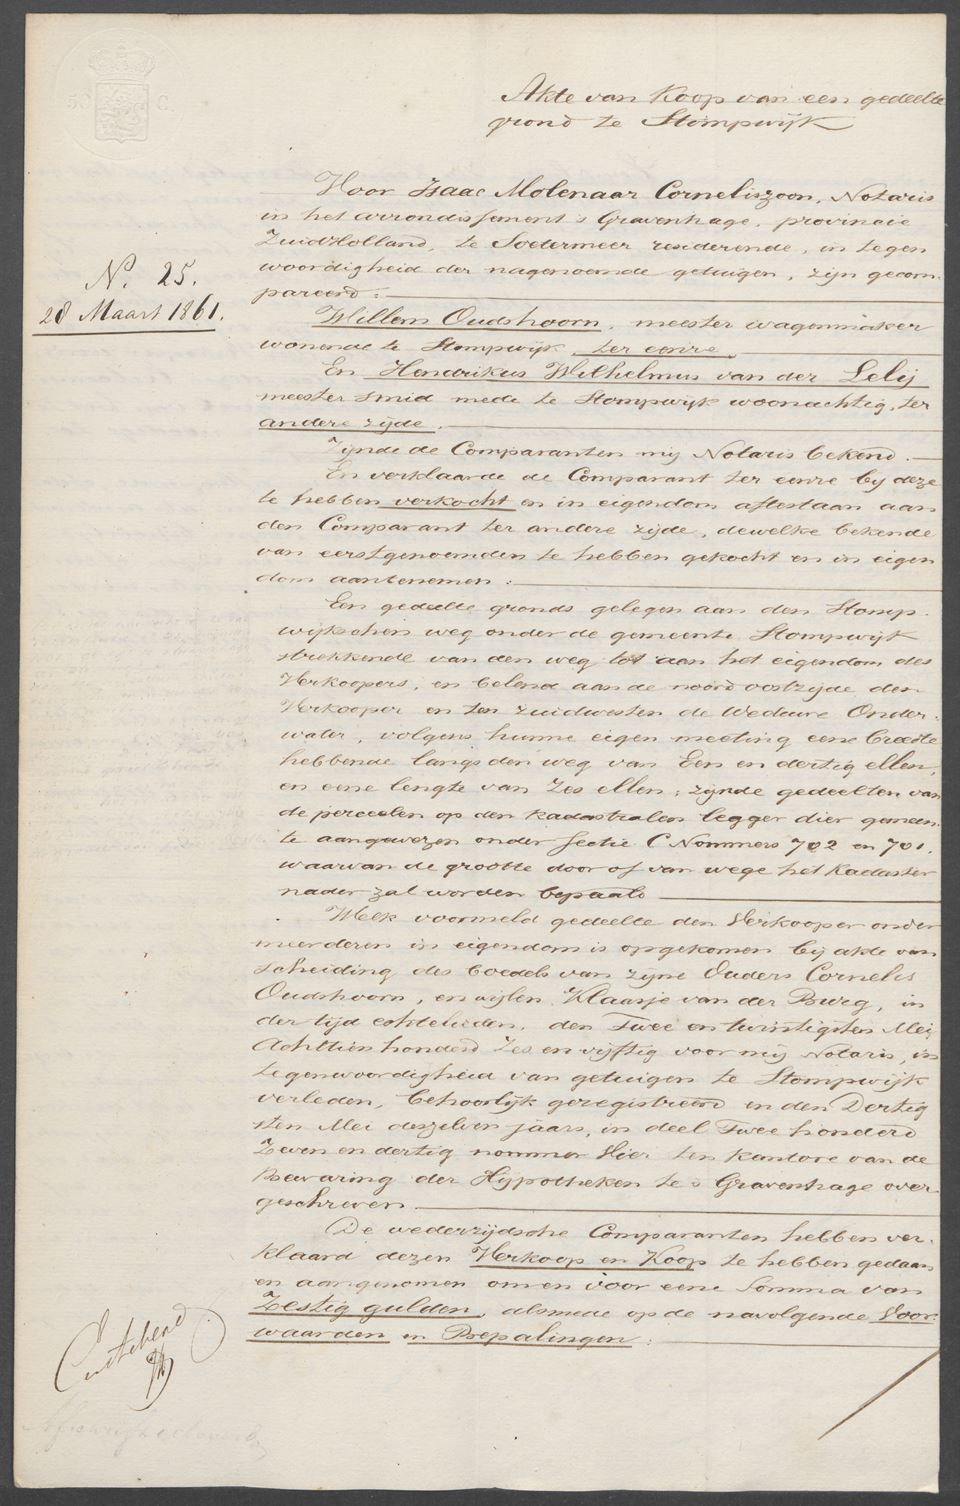 50 C.
Akte van Koop van een gedeelte
grond te Stompwijk
Voor Isaac Molenaar Corneliszoon, Notaris
in het arrondissement 's Gravenhage, provincie
Zuidholland, te Soetermeer resideerende, in tegen
woordigheid der nagenoemde getuigen, zijn gecom
pareerd:
N. 25.
28 Maart 1861.
Willem Oudshoorn, meester wagenmaker
wonende te Stompwijk ter eenre,
En Hendrikus Wilhelmus van der Lelij
meester smid mede te Stompwijk woonachtig, ter
andere zijde.
Zijnde de Comparanten mij Notaris bekend.
En verklaarde de Comparant ter eenre bij deze
te hebben verkocht en in eigendom aftestaan aan
den Comparant ter andere zijde, dewelke bekende
van eerstgenoemden te hebben gekocht en in eigen
dom aantenemen:
Een gedeelte gronds gelegen aan den Stomp
wijkschen weg onder de gemeente Stompwijk
strekkende van den weg tot aan het eigendom des
Verkoopers, en belend aan de noord oostzijde den
Verkooper en ten zuidwesten de Weduwe Onder
water, volgens hunne eigen meeting eene breedte
hebbende langs den weg van Een en dertig ellen,
en eene lengte van Zes ellen; zijnde gedeelten van
de perceelen op den kadastralen legger dier gemeen
te aangewezen onder sectie C Nommers 702 en 701.
waarvan de grootte door of van wege het Kadaster
nader zal worden bepaald
Welk voormeld gedeelte den Verkooper onder
meerderen in eigendom is opgekomen bij akte van
scheiding des boedels van zijne Ouders Cornelis
Oudshoorn, en wijlen Klaasje van der Burg, in
der tijd echtelieden, den Twee en twintigsten Mei
Achttien honderd Zes en vijftig voor mij Notaris, in
tegenwoordigheid van getuigen te Stompwijk
verleden, behoorlijk geregistreerd en den Dertig
sten Mei deszelven jaars, in deel Twee honderd
Zeven en dertig nommer Vier ten kantore van de
Bewaring der Hypotheken te 's Gravenhage over
geschreven.
De wederzijdsche Comparanten hebben ver
klaard dezen Verkoop en Koop te hebben gedaan
en aangenomen om en voor eene Somma van
Zestig gulden, alsmede op de navolgende Voor
waarden en Bepalingen: